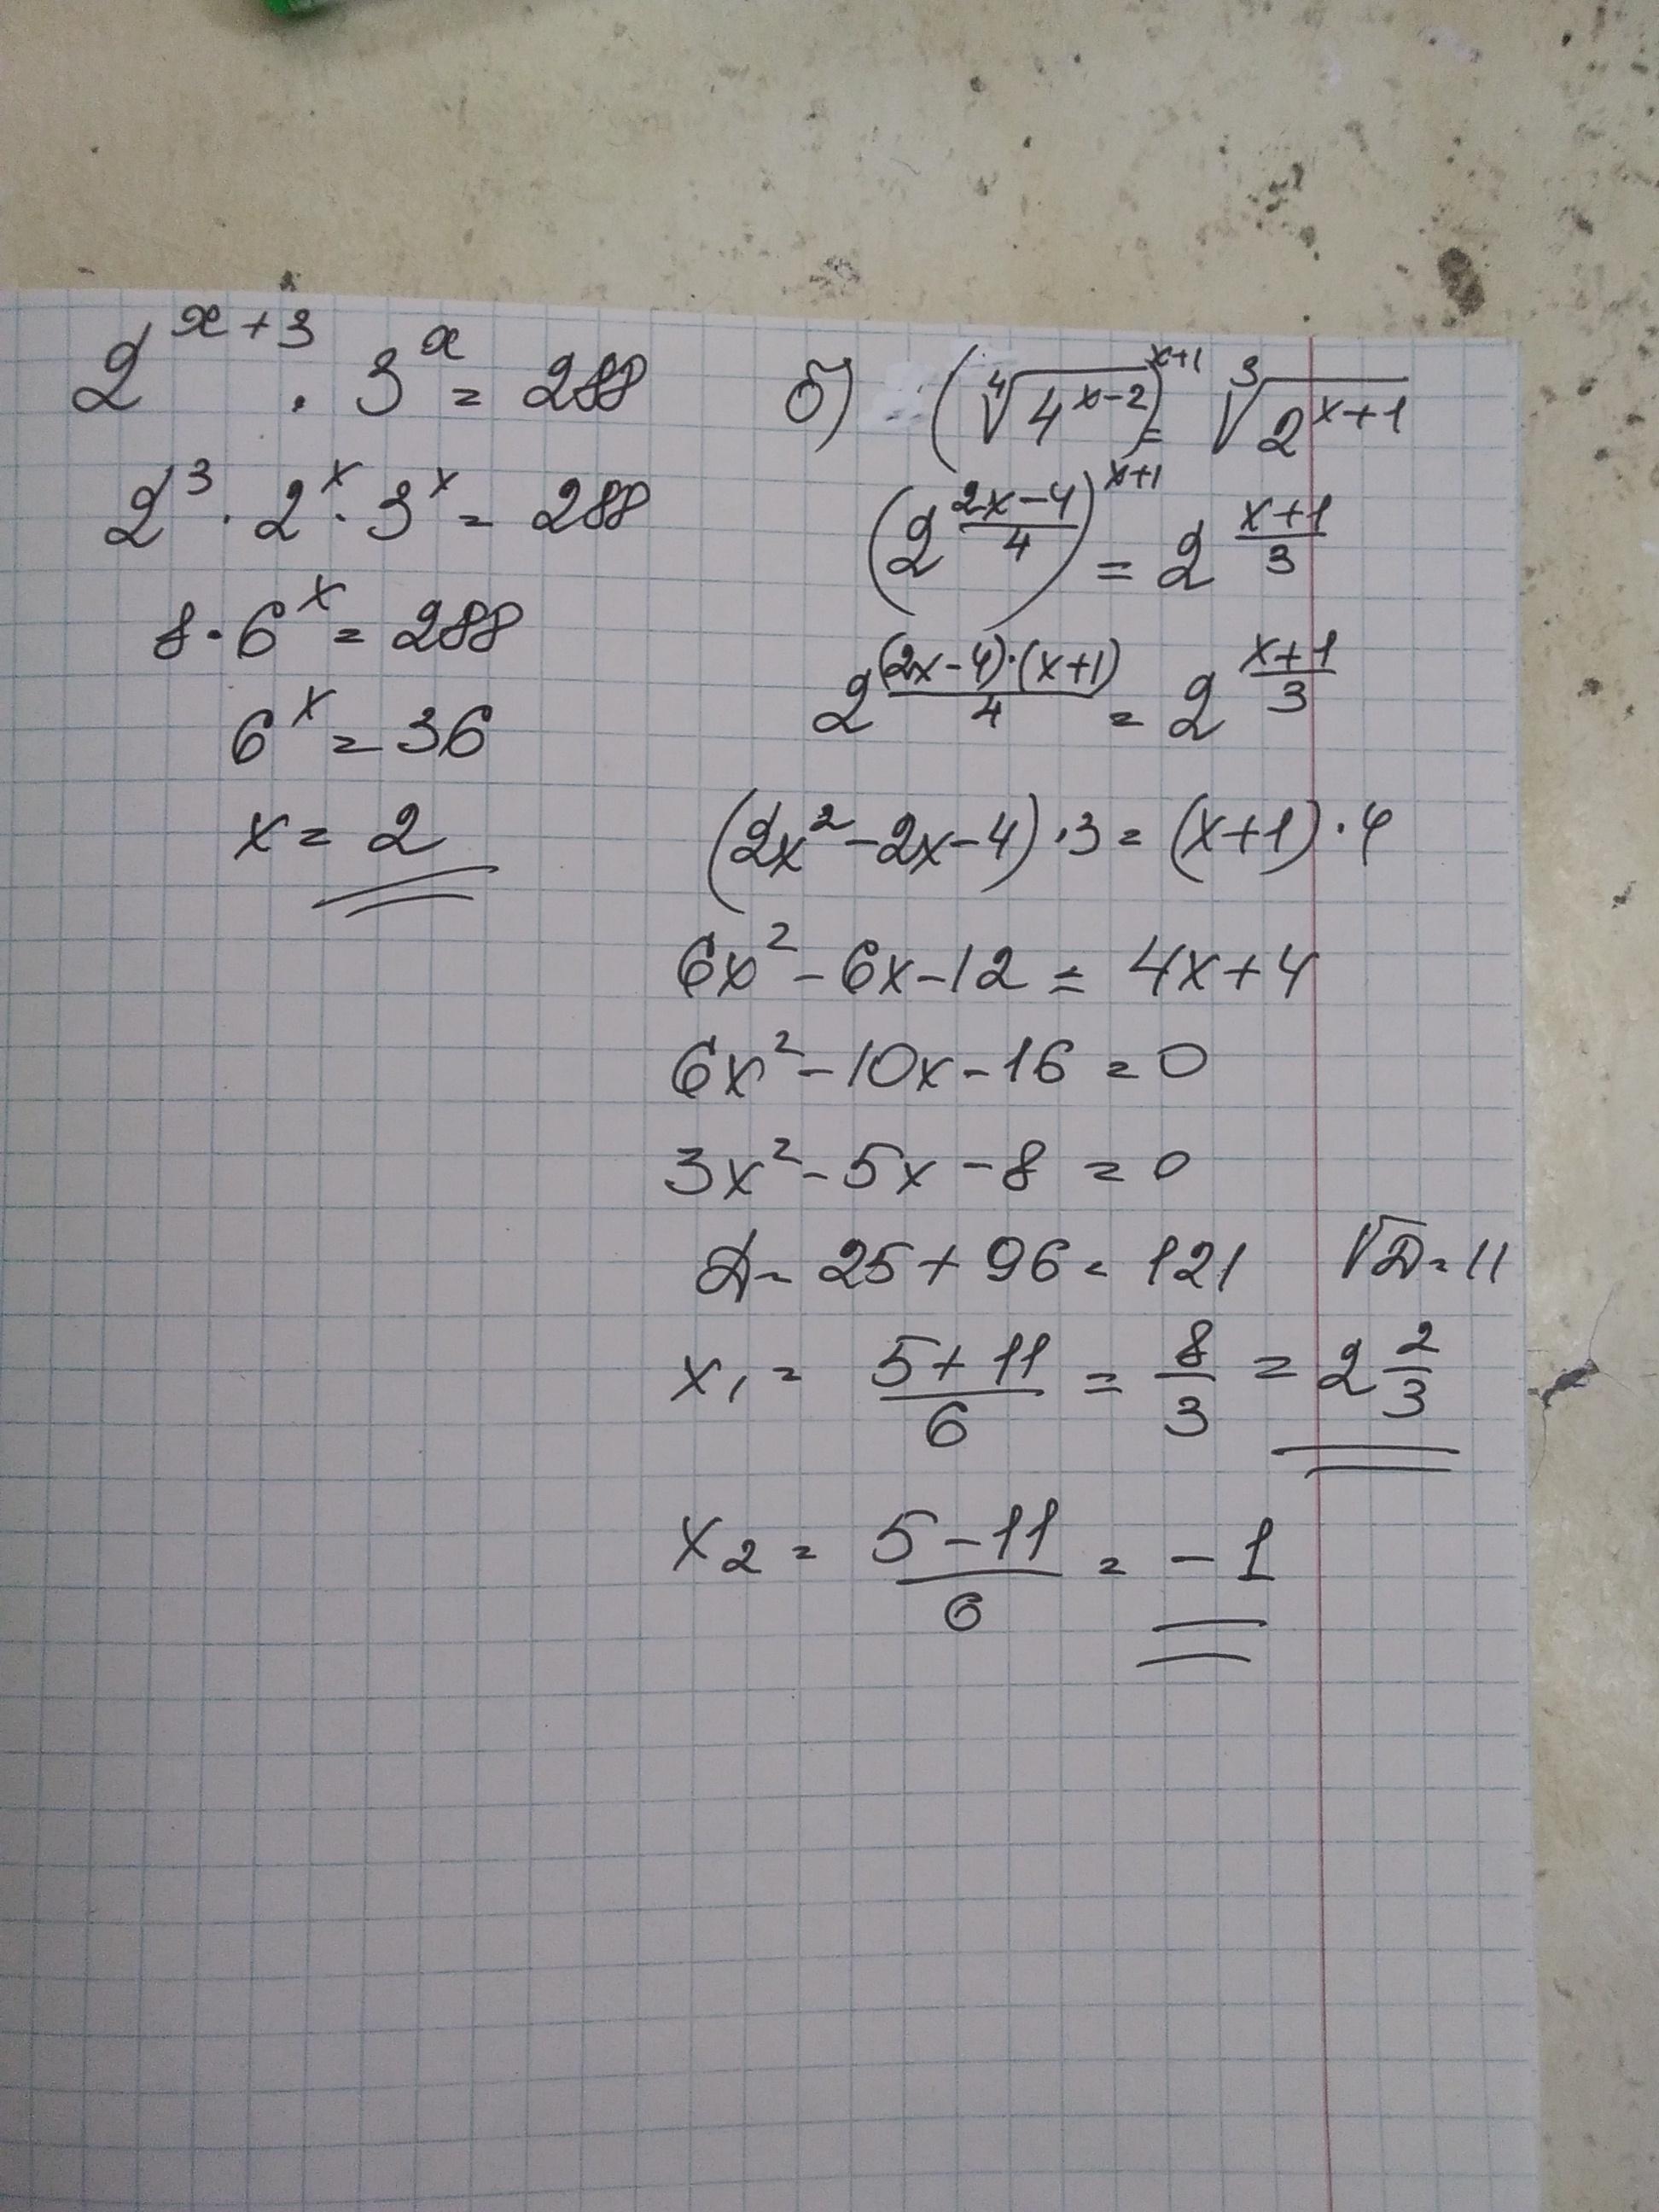 2^(x+3) · 3^x = 288
2^3 · 2^x · 3^x = 288
8 · 6^x = 288
6^x = 36
x = 2
б) (∜(4^(x-2)))^(x+1) = ∛(2^(x+1))
(2^((2x-4)/4))^(x+1) = 2^((x+1)/3)
2^((2x-4)·(x+1)/4) = 2^((x+1)/3)
(2x² - 2x - 4) · 3 = (x+1) · 4
6x² - 6x - 12 = 4x + 4
6x² - 10x - 16 = 0
3x² - 5x - 8 = 0
D = 25 + 96 = 121 √D = 11
x₁ = (5+11)/6 = 8/3 = 2 2/3
x₂ = (5-11)/6 = -1